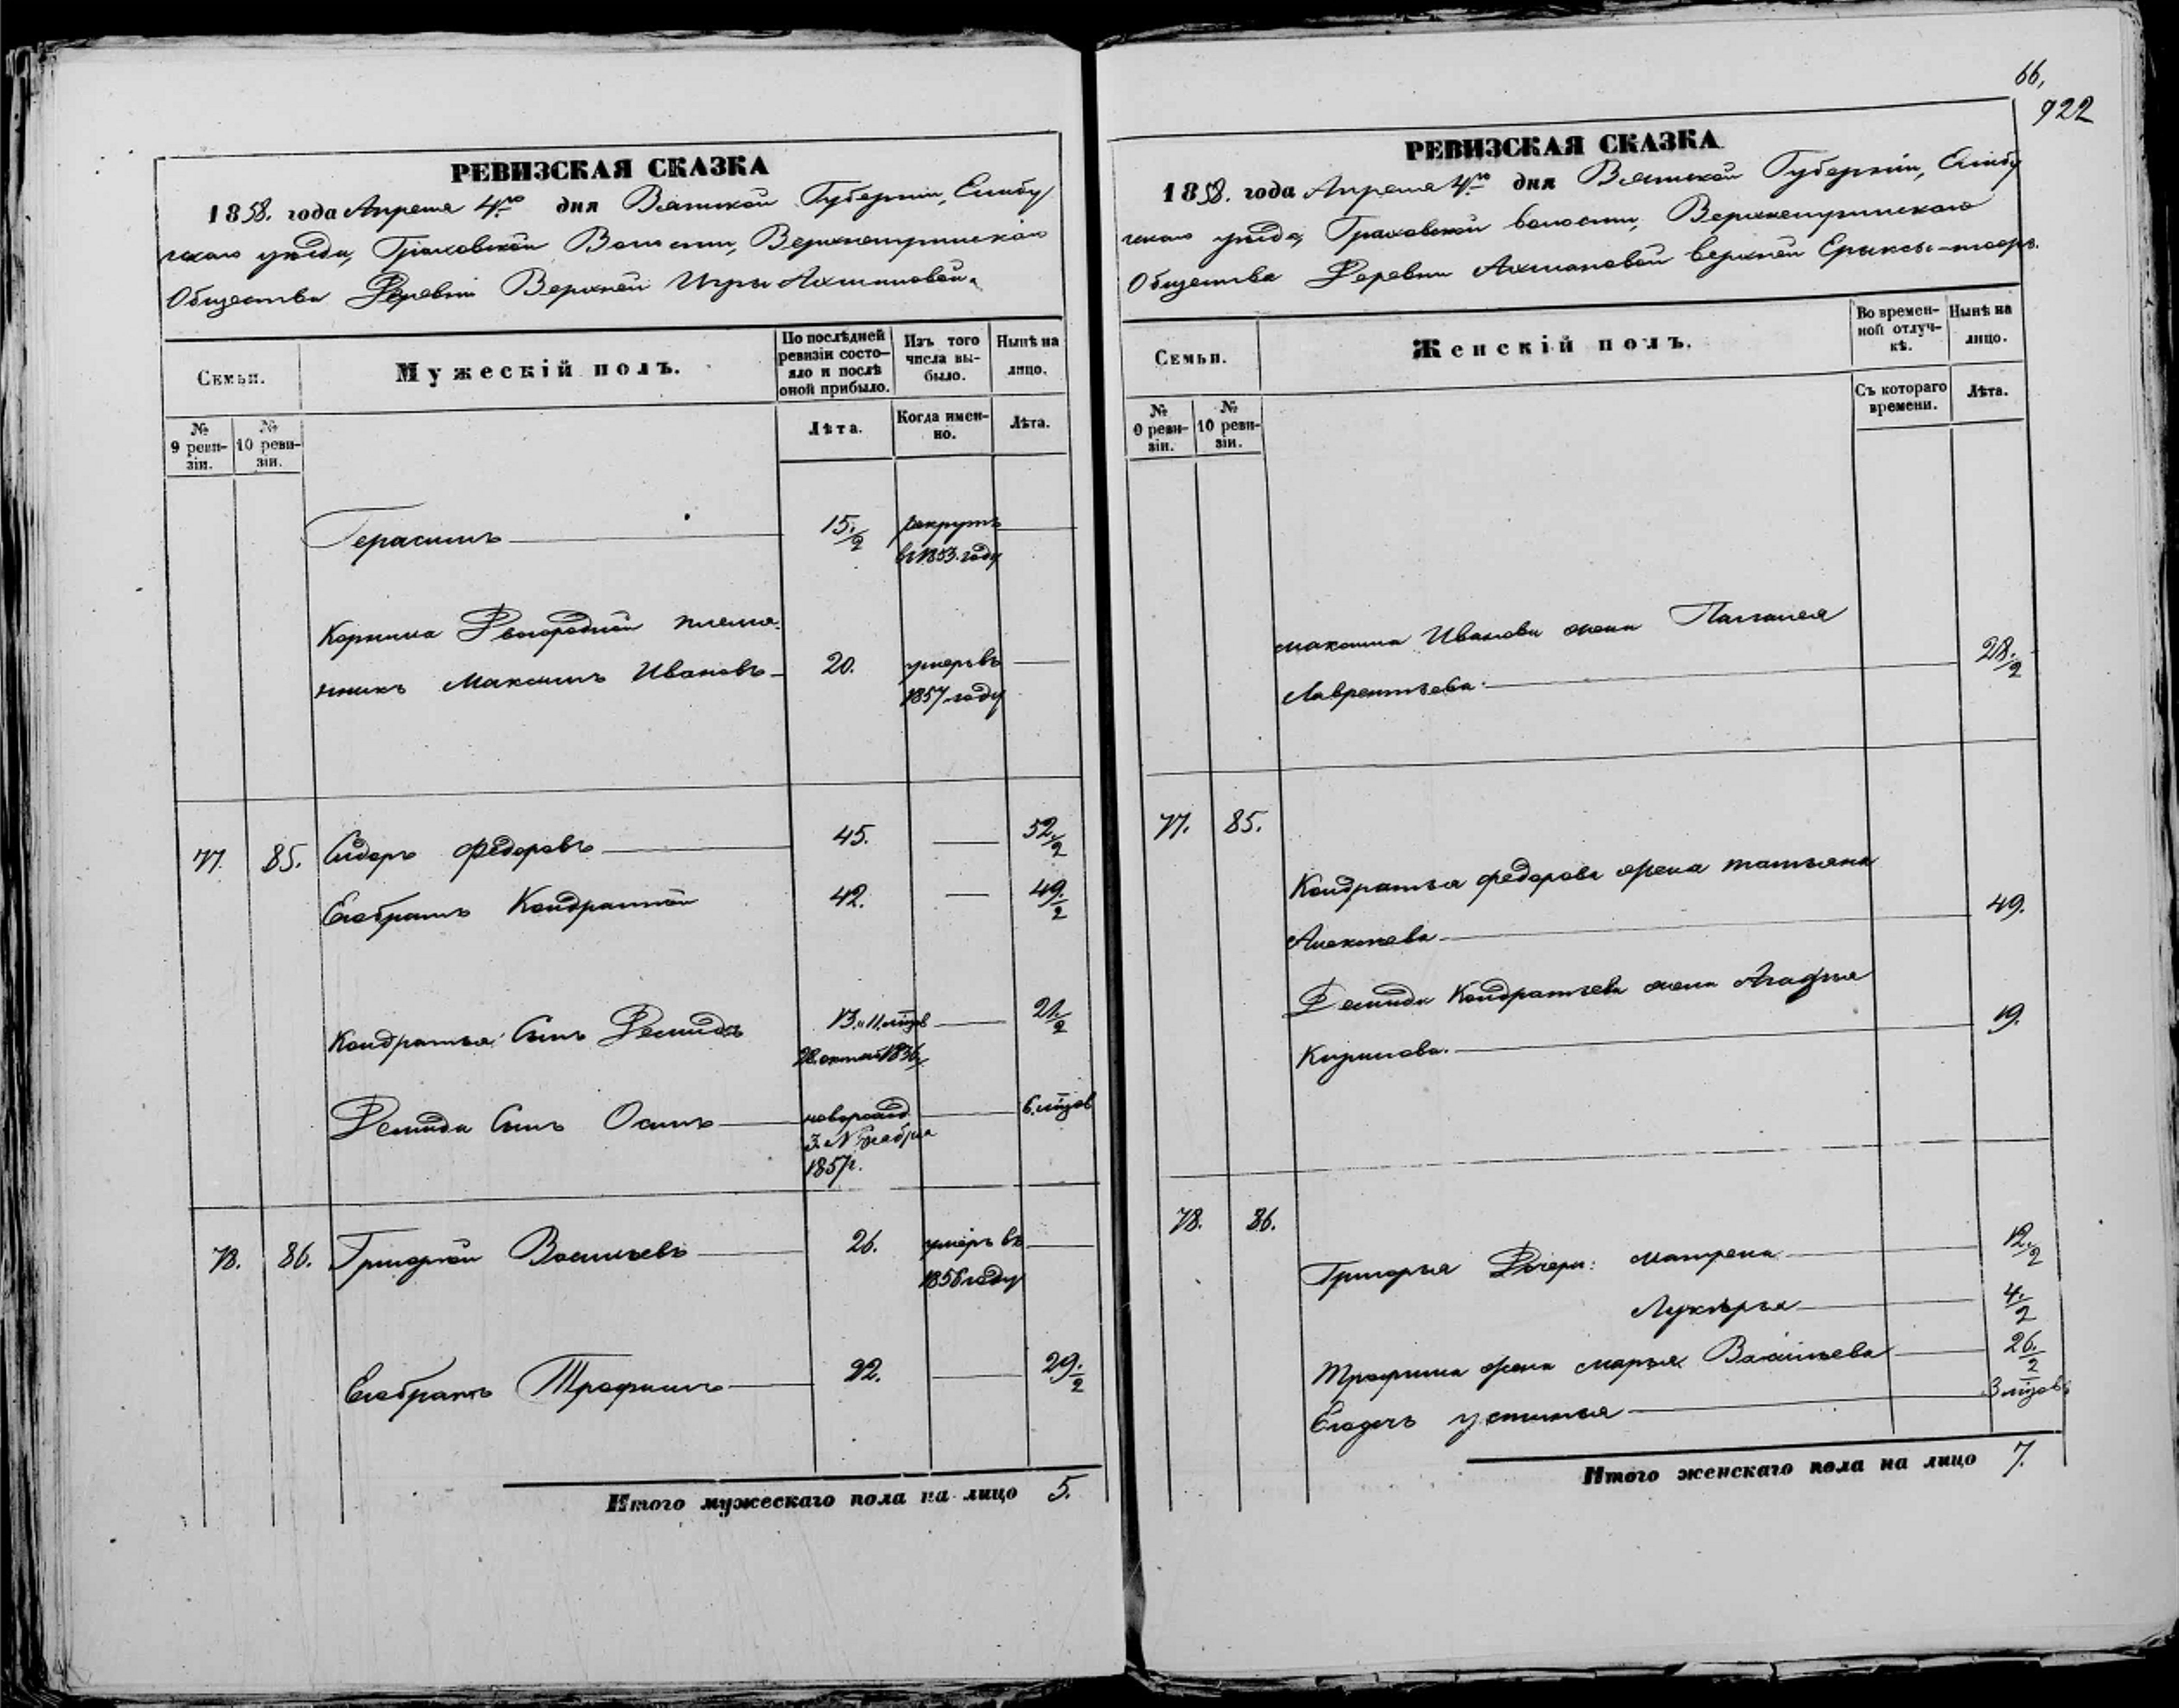 РЕВИЗСКАЯ СКАЗКА
1858. года Апреля 4го дня Вятской Губернiи, Елабу
скаго уѣзда, Граховской Волости, Верхнеигринскаго
Общества Деревни Верхней Игры Ахтиановой.
Семьи.
Мужескiй полъ.
По послѣдней ревизiи состо-
яло и послѣ
оной прибыло.
Изъ того
числа вы-
было.
Нынѣ на
лицо.
№
9 реви-
зiи.
№
10 реви-
зiи.
Лѣта.
Когда имен-
но.
Лѣта.
Герасимъ 15 1/2 рекрутъ
въ 1853. году
Корнила Двоюродной племя-
нникъ Максимъ Ивановъ 20. умеръ въ
1857 году
77. 85. Сидоръ Федоровъ 45. 52 1/2
Его братъ Кондратiй 42. 49 1/2
Кондратья Сынъ Демидъ 13. 11. мѣцов 21 1/2
28. октяб 1836
Демида Сынъ Осипъ новорожд 6. мѣцов
3. Ноября
1857 г.
78. 86. Григорiй Васильевъ 26. умеръ въ
1856 году
Его братъ Трофимъ 22. 29 1/2
Итого мужескаго пола на лицо 5.
66.
922
РЕВИЗСКАЯ СКАЗКА
1858. года Апреля 4го дня Вятской Губернiи, Елабу
скаго уѣзда, Граховской волости, Верхнеигринскаго
Общества Деревни Ахтиановой Верхней
Семьи.
Женскiй полъ.
Во времен-
ной отлуч-
кѣ.
Нынѣ на
лицо.
№
9 реви-
зiи.
№
10 реви-
зiи.
Съ котораго
времени.
Лѣта.
Максима Иванова жена Палагея
Лаврентьева 28 1/2
77. 85.
Кондратья Федорова жена Татьяна
Алексѣева 49.
Демида Кондратьева жена Агафья
Кирилова. 19.
78. 86.
Григорья Дочери: Матрена 12 1/2
Лукѣрья 4 1/2
Трофима жена Марья Васильева 26 1/2
Его дочь Устинья 3 мѣцов
Итого женскаго пола на лицо 7.